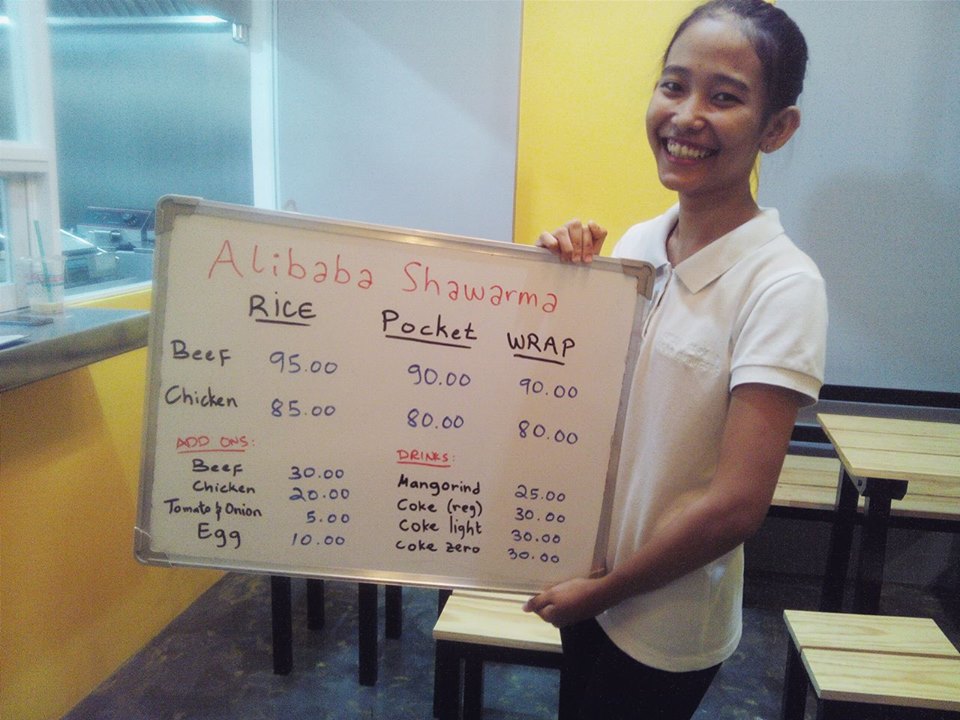 Alibaba Shawarma
RICE Pocket WRAP
Beef 95.00 90.00 90.00
Chicken 85.00 80.00 80.00
ADD ONS:
Beef 30.00
Chicken 20.00
Tomato & Onion 5.00
Egg 10.00
DRINKS:
Mangorind 25.00
Coke (reg) 30.00
Coke light 30.00
Coke zero 30.00